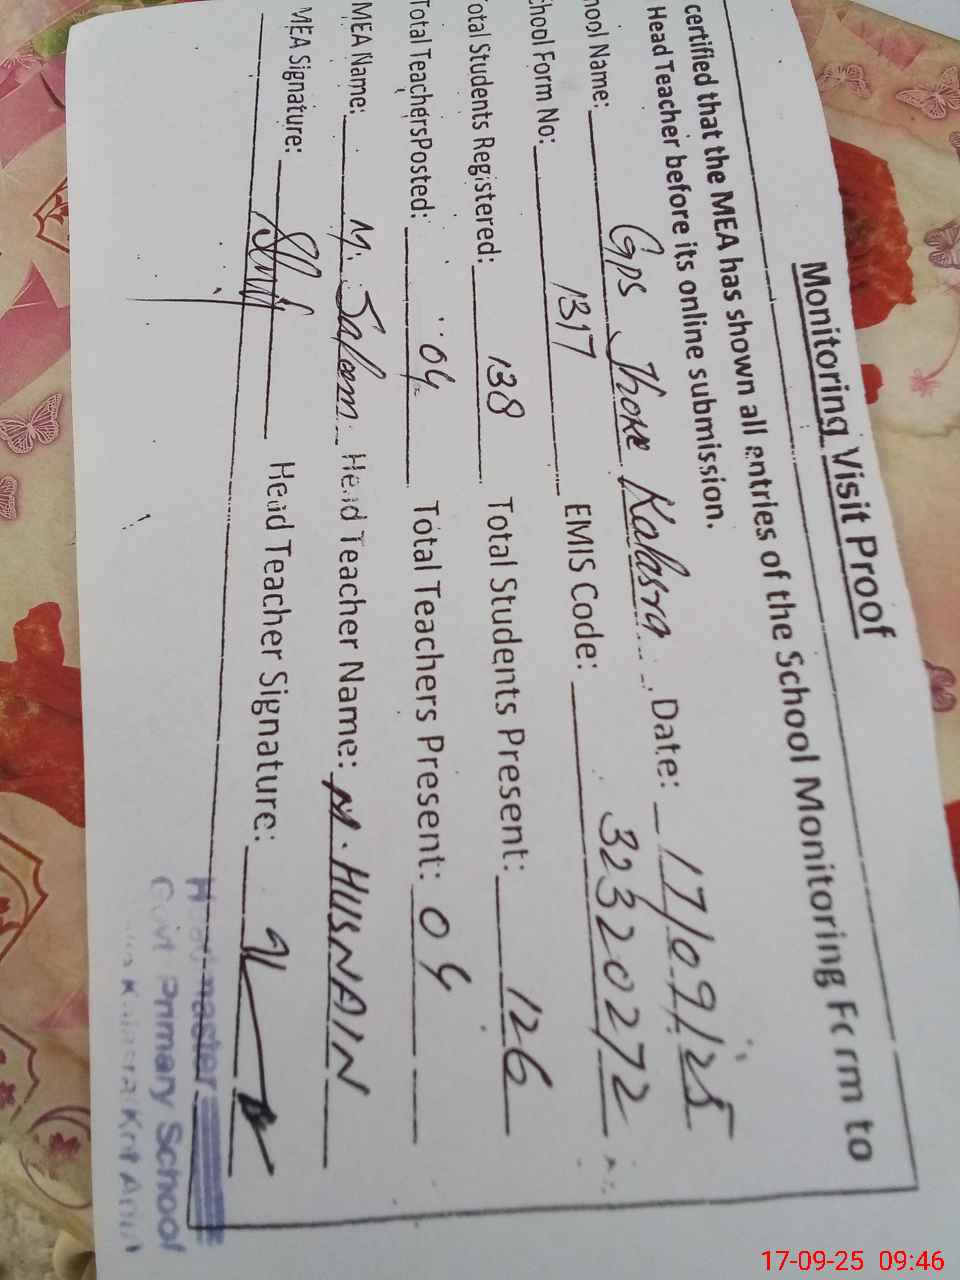 Monitoring Visit Proof
certified that the MEA has shown all entries of the School Monitoring Form to
Head Teacher before its online submission.
hool Name: Gps Jhoke Kalasra Date: 17/09/25
chool Form No: 1317 EMIS Code: 32320272
otal Students Registered: 138 Total Students Present: 126
Total Teachers Posted: 04 Total Teachers Present: 04
MEA Name: M. Saleem Head Teacher Name: M. HUSNAIN
MEA Signature: Head Teacher Signature:
Headmaster
Govt Primary School
17-09-25 09:46